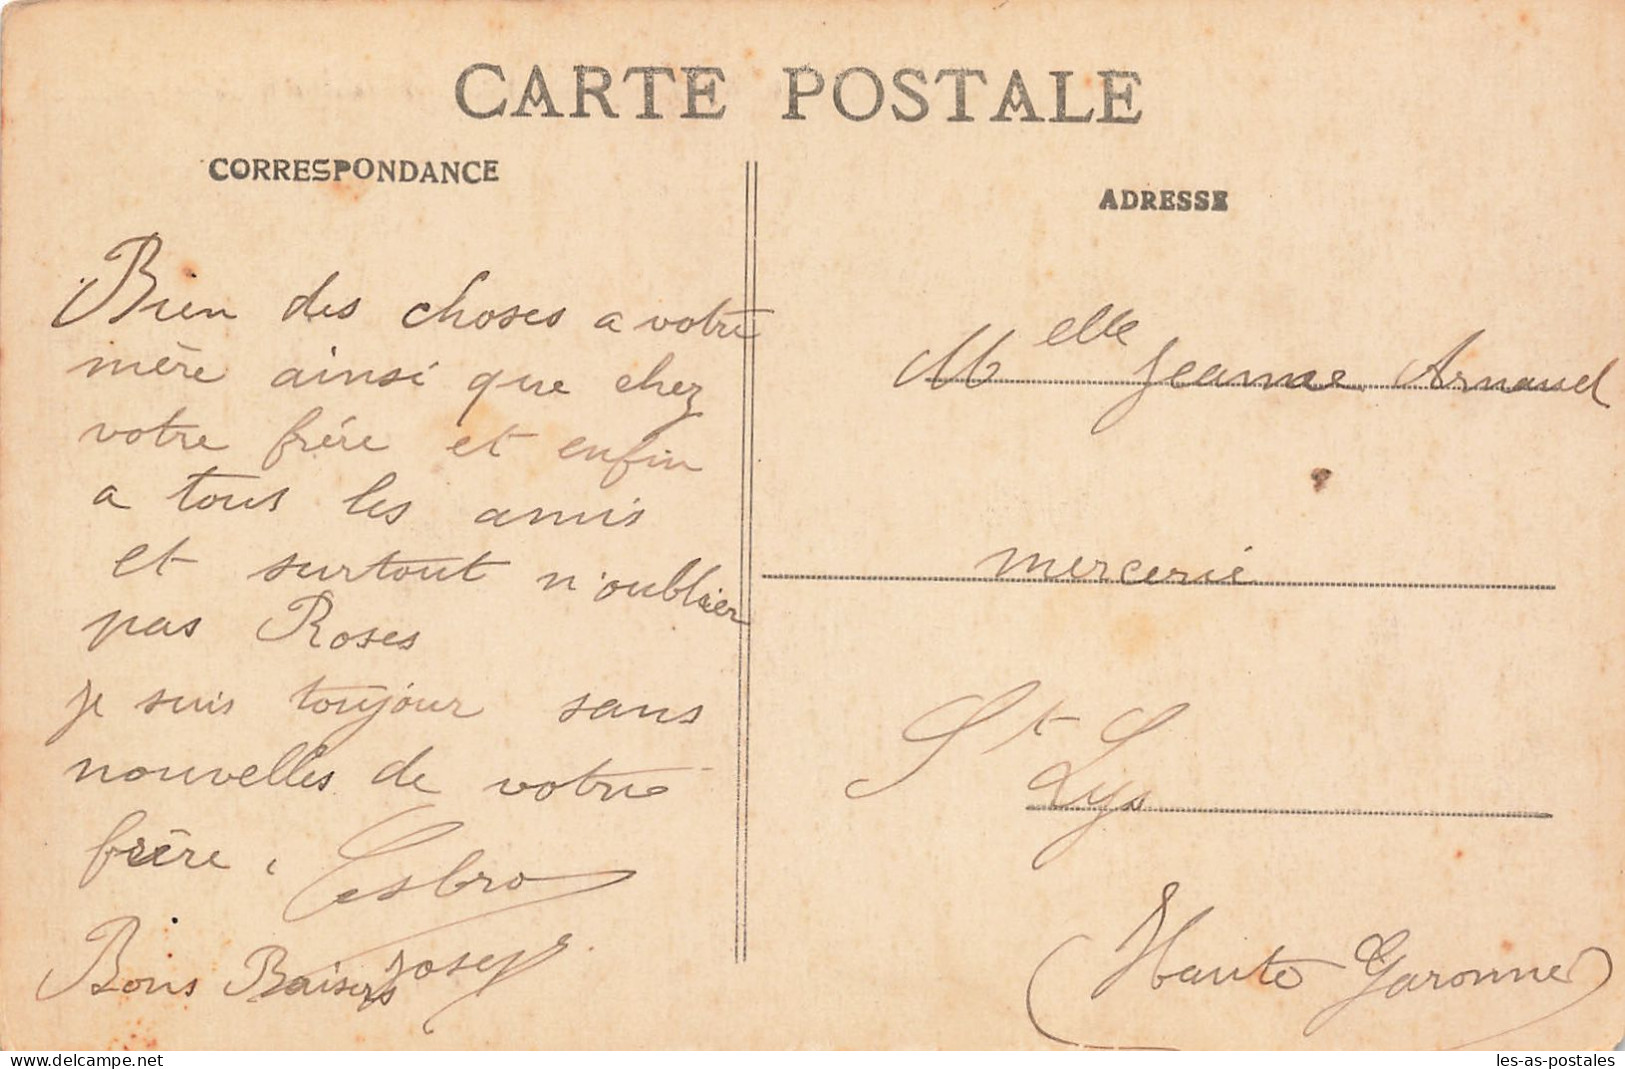 CARTE POSTALE
CORRESPONDANCE
Bien des choses a votre
mère ainsi que chez
votre frère et enfin
a tous les amis
et surtout n'oublier
pas Roses
je suis toujour sans
nouvelles de votre
frère,
Bons Baisers Josep
ADRESSE
Melle Jeanne Arnaud
mercerie
St Lys
(Haute Garonne)
delcampe.net
les-as-postales